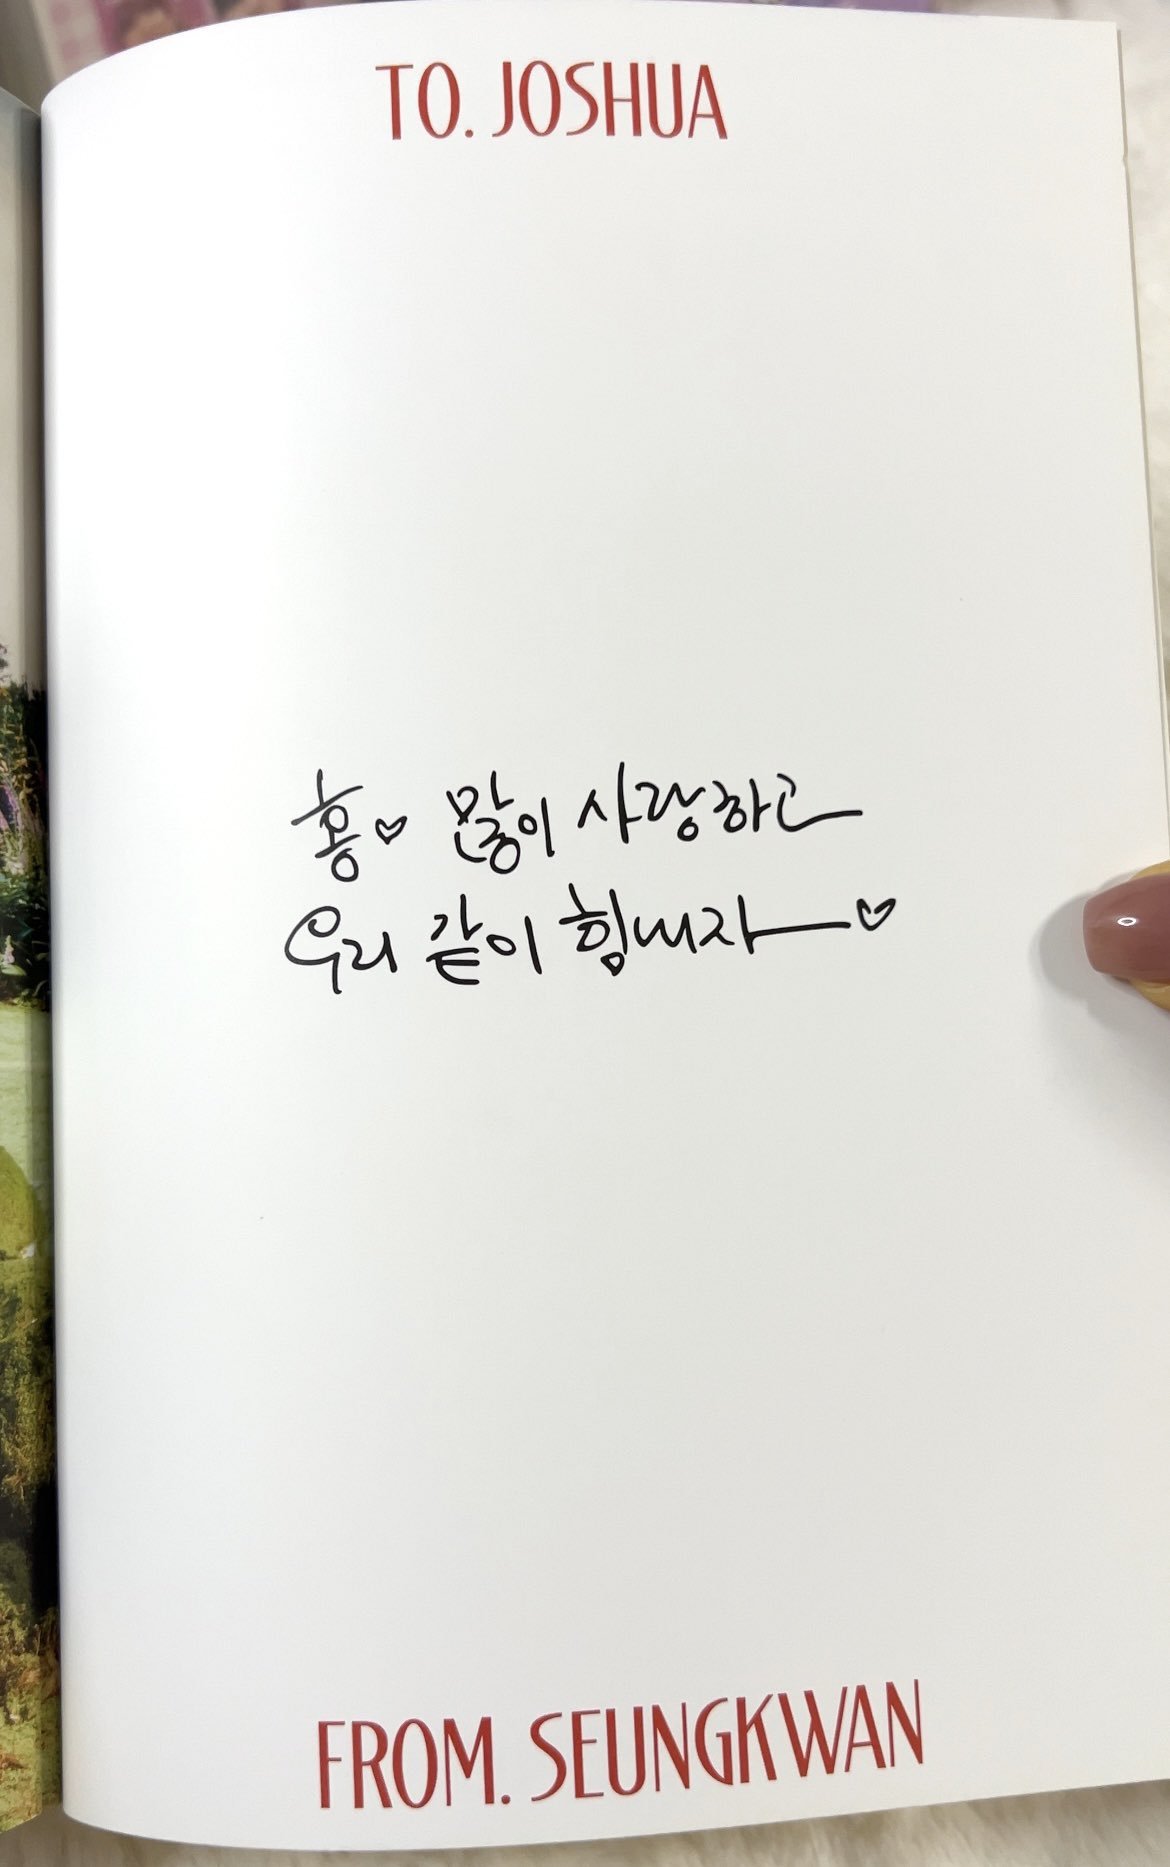 TO. JOSHUA
홍♡ 많이 사랑하고
우리 같이 힘내자ー♡
FROM. SEUNGKWAN